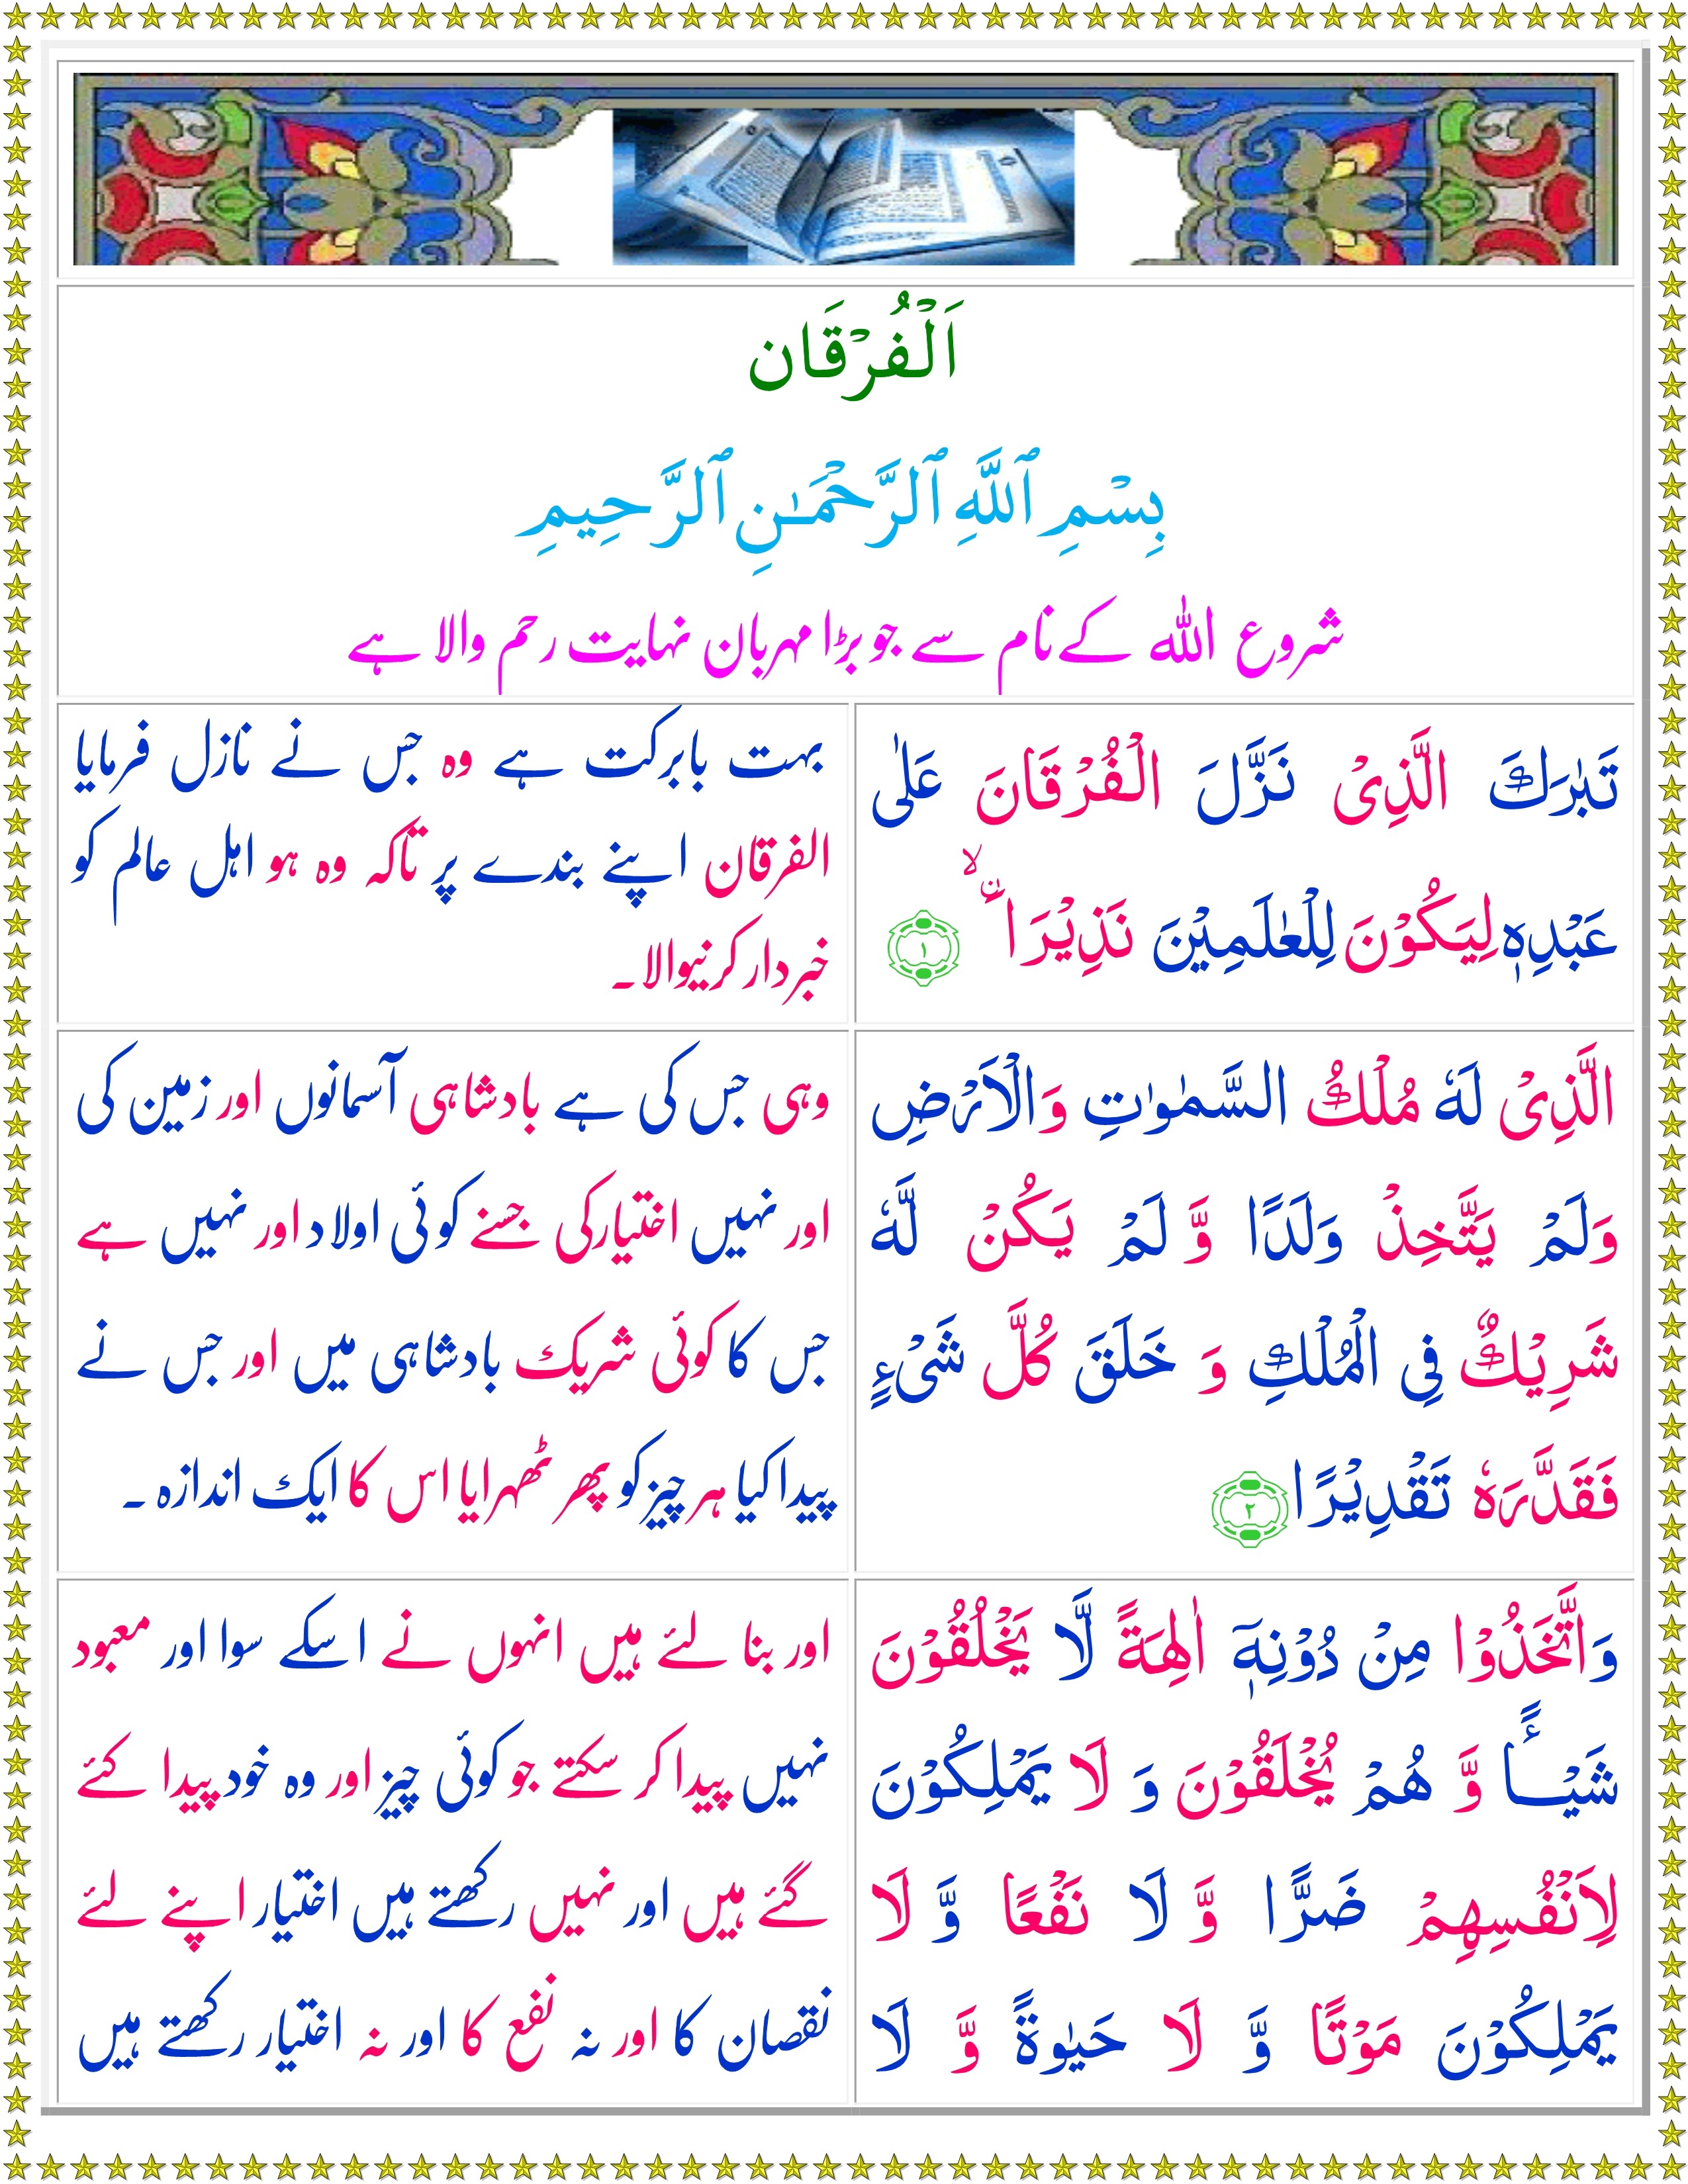 اَلْفُرْقَان
بِسْمِ ٱللَّهِ ٱلرَّحْمَـٰنِ ٱلرَّحِيمِ
شروع اللہ کے نام سے جو بڑا مہربان نہایت رحم والا ہے
تَبٰرَكَ الَّذِىْ نَزَّلَ الْفُرْقَانَ عَلٰى
عَبْدِهٖ لِيَكُوْنَ لِلْعٰلَمِيْنَ نَذِيْرَاۨ ۙ ‏﴿۱﴾
بہت بابرکت ہے وہ جس نے نازل فرمایا
الفرقان اپنے بندے پر تاکہ وہ ہو اہل عالم کو
خبردار کرنیوالا۔
الَّذِىْ لَهٗ مُلْكُ السَّمٰوٰتِ وَالْاَرْضِ
وَلَمْ يَتَّخِذْ وَلَدًا وَّ لَمْ يَكُنْ لَّهٗ
شَرِيْكٌ فِى الْمُلْكِ وَ خَلَقَ كُلَّ شَىْءٍ
فَقَدَّرَهٗ تَقْدِيْرًا ﴿۲﴾
وہی جس کی ہے بادشاہی آسمانوں اور زمین کی
اور نہیں اختیار کی جسنے کوئی اولاد اور نہیں ہے
جس کا کوئی شریک بادشاہی میں اور جس نے
پیدا کیا ہر چیز کو پھر ٹھہرایا اس کا ایک اندازہ ۔
وَاتَّخَذُوْا مِنْ دُوْنِهٖۤ اٰلِهَةً لَّا يَخْلُقُوْنَ
شَيْـــًٔا وَّ هُمْ يُخْلَقُوْنَ وَ لَا يَمْلِكُوْنَ
لِاَنْفُسِهِمْ ضَرًّا وَّ لَا نَفْعًا وَّ لَا
يَمْلِكُوْنَ مَوْتًا وَّ لَا حَيٰوةً وَّ لَا
اور بنا لئے ہیں انہوں نے اسکے سوا اور معبود
نہیں پیدا کر سکتے جو کوئی چیز اور وہ خود پیدا کئے
گئے ہیں اور نہیں رکھتے ہیں اختیار اپنے لئے
نقصان کا اور نہ نفع کا اور نہ اختیار رکھتے ہیں